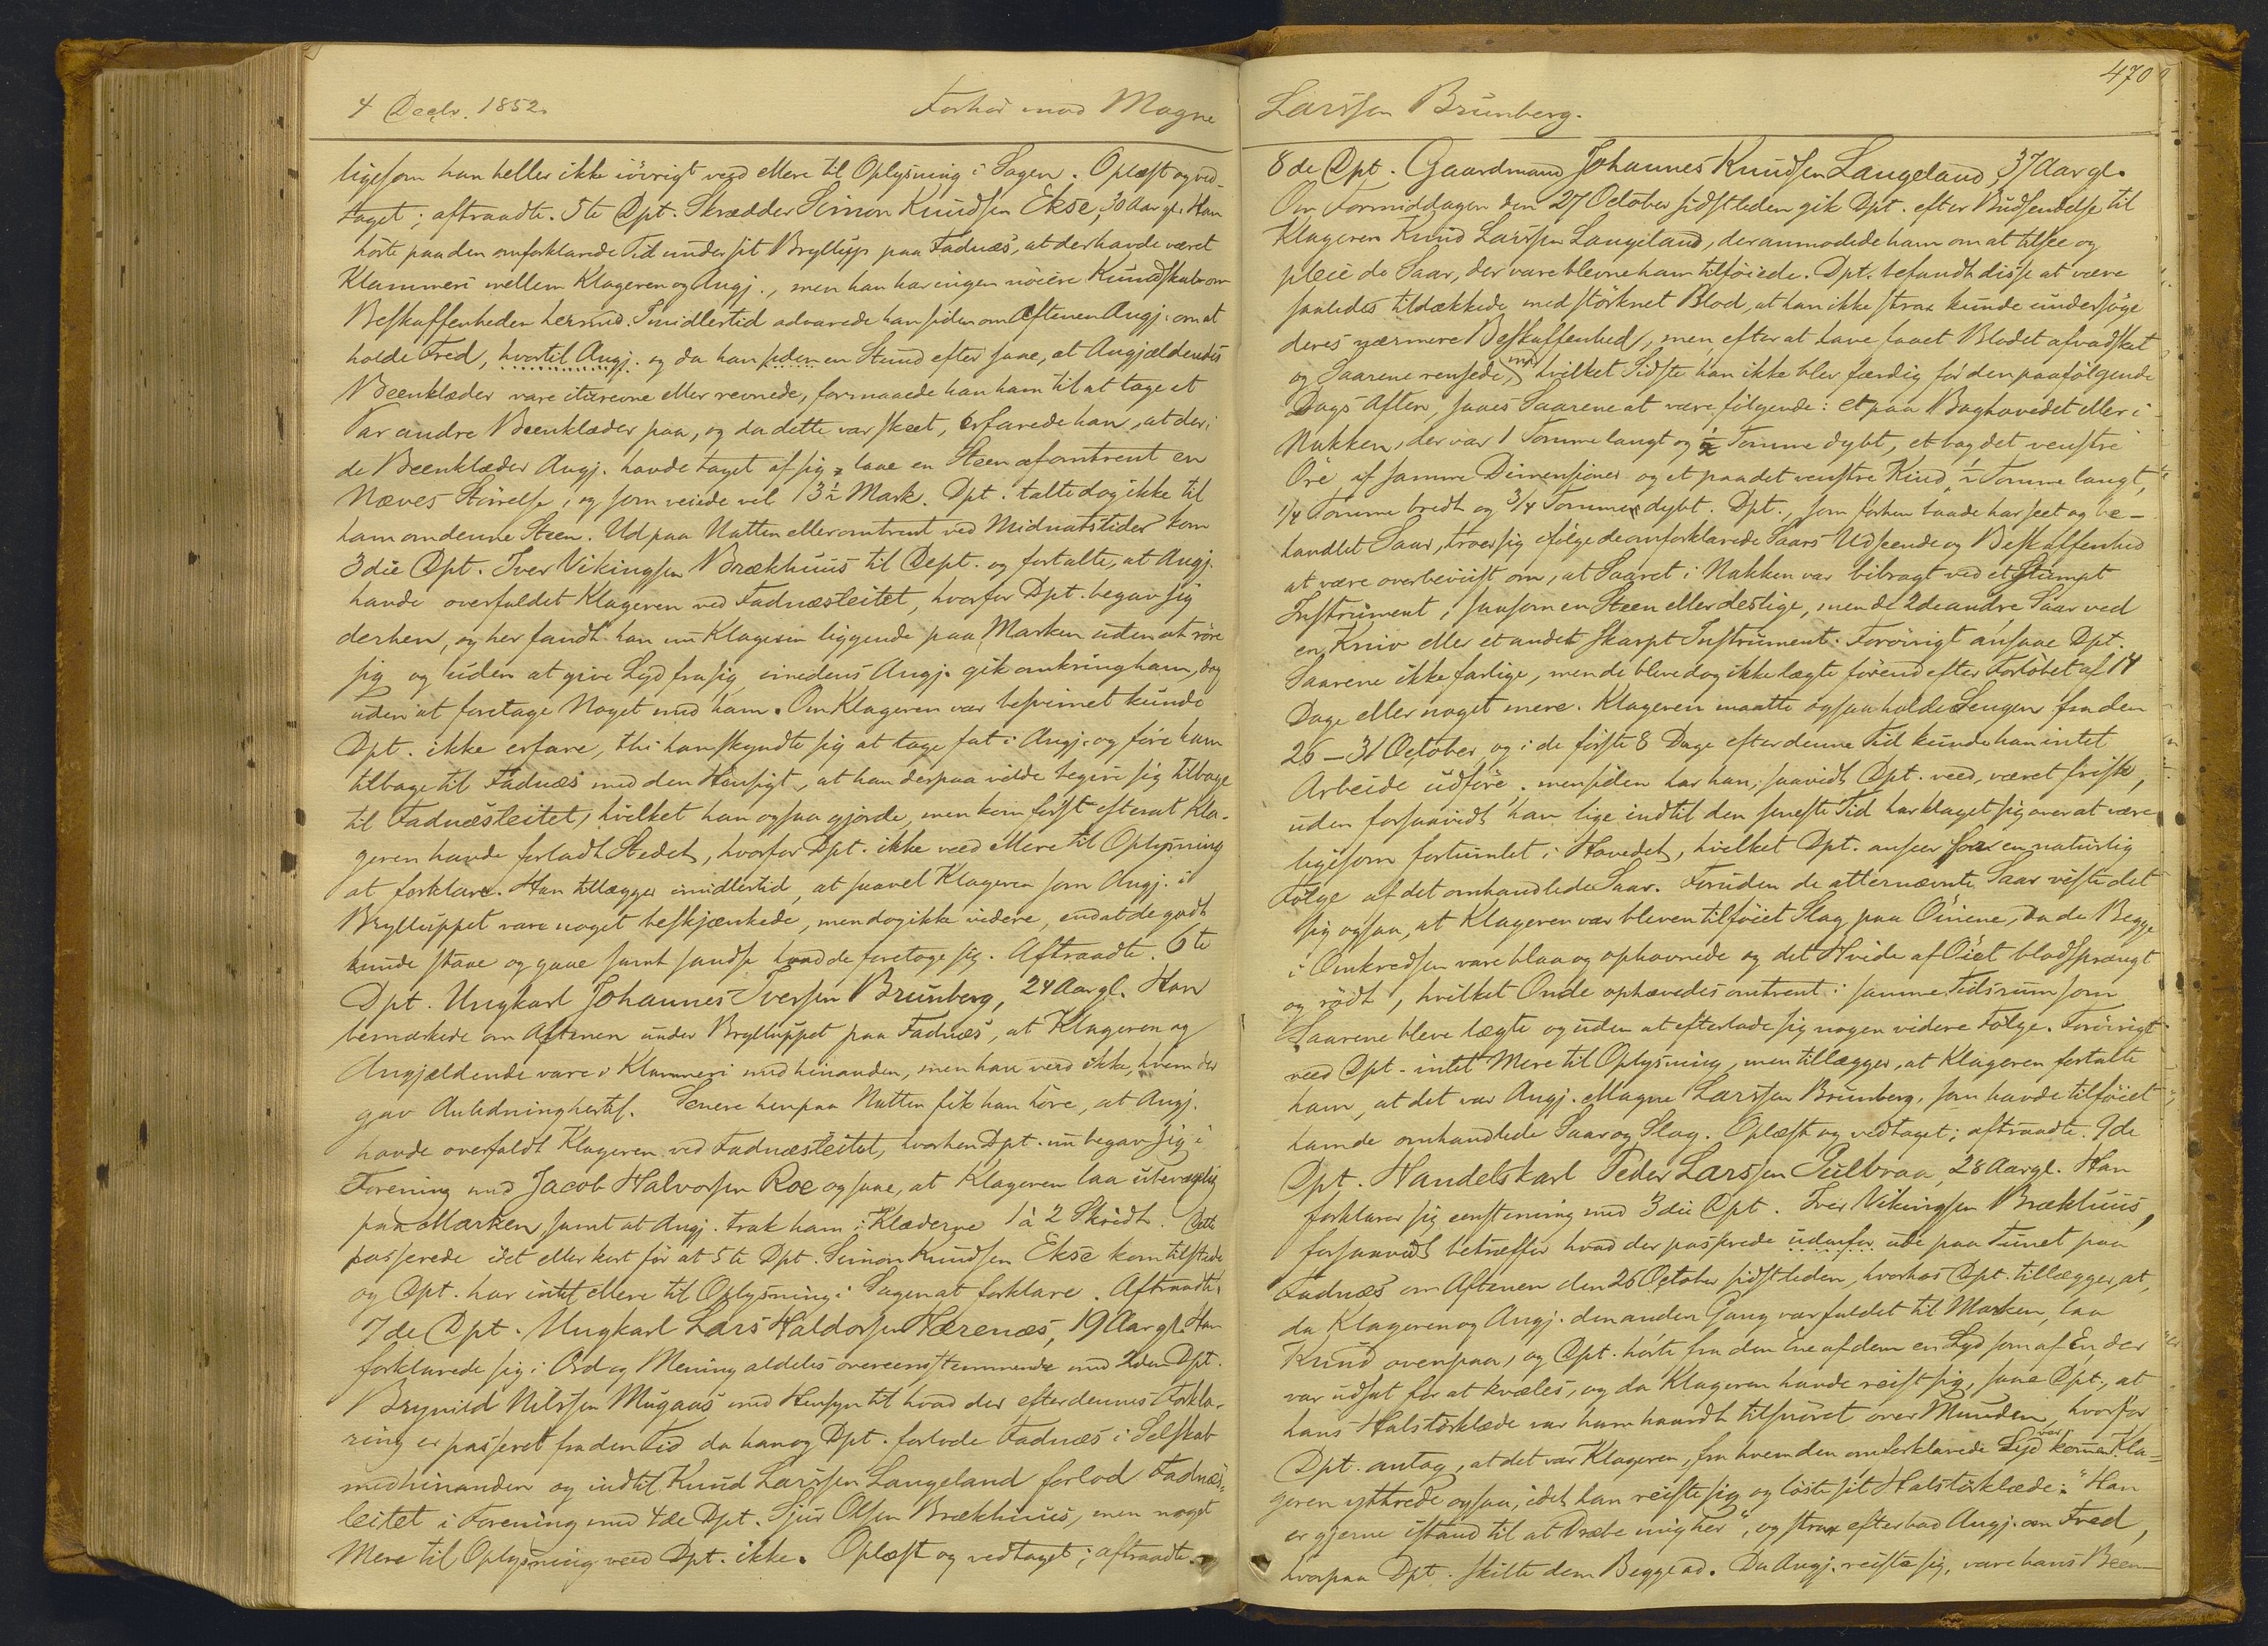 4 Decbr. 1852.
Forhör mod Magne
ligesom han heller ikke iövrigt veed Mere til Oplysning i Sagen. Oplæst og ved-
taget; aftraadte. 5te Dpt. Skrædder Simon Knudsen Ekse, 30 Aar gl. Han
hörte paa den omforklarede Tid under sit Bryllup paa Fadnæs, at der havde været
Klammeri mellem Klageren og Angj., men han har ingen nöiere Kundskab om
Beskaffenheden hermed. Imidlertid advarede han siden om Aftenen Angj. om at
holde Fred, hvortil Angj. og da han siden en Stund efter saae, at Angjældendes
Beenklæder vare iturevne eller revnede, formaaede han ham til at tage et
Par andre Beenklæder paa, og da dette var skeet, erfarede han, at der i
de Beenklæder Angj. havde taget af sig, laae en Steen af omtrent en
Næves Störrelse, og som veiede vel 1 3½ Mark. Dpt. talte dog ikke til
ham om denne Steen. Ud paa Natten eller omtrent ved Midnatstider kom
3die Dpt. Iver Vikingsen Brækhuus til Dept. og fortalte, at Angj.
havde overfaldet Klageren ved Fadnæsleitet, hvorfor Dpt. begav sig
derhen, og her fandt han nu Klageren liggende paa Marken uden at röre
sig og uden at give Lyd fra sig, imedens Angj. gik omkring ham, dog
uden at foretage Noget med ham. Om Klageren var besvimet kunde
Dpt. ikke erfare, thi han skyndte sig at tage fat i Angj. og före ham
tilbage til Fadnæs med den Hensigt, at han derpaa vilde begive sig tilbage
til Fadnæsleitet, hvilket han ogsaa gjorde, men kom först efterat Kla-
geren havde forladt Stedet, hvorfor Dpt. ikke veed Mere til Oplysning
at forklare. Han tillægger imidlertid, at saavel Klageren som Angj. i
Brylluppet vare noget beskjænkede, men dog ikke videre, end at de godt
kunde staae og gaae samt sandse hvad de foretoge sig. Aftraadte. 6te
Dpt. Ungkarl Johannes Iversen Brunberg, 24 Aar gl. Han
bemærkede om Aftenen under Brylluppet paa Fadnæs, at Klageren og
Angjældende vare i Klammeri med hinanden, men han veed ikke, hvem der
gav Anledning hertil. Senere henpaa Natten fik han höre, at Angj.
havde overfaldt Klageren ved Fadnæsleitet, hvorhen Dpt. nu begav sig i
Forening med Jacob Halvorsen Roe og saae, at Klageren laa ubevægelig
paa Marken, samt at Angj. trak ham i Klæderne 1 à 2 Skridt. Dette
passerede idet eller kort för at 5te Dpt. Simon Knudsen Ekse kom tilstede
og Dpt. har intet Mere til Oplysning i Sagen at forklare. Aftraadte.
7de Dpt. Ungkarl Lars Haldorsen Hærenæs, 19 Aar gl. Han
forklarede sig i Ord og Mening aldeles overeensstemmende med 2den Dpt.
Brynild Nilssen Mugaas med Hensyn til hvad der efter dennes Forkla-
ring er passeret fra den Tid da han og Dpt. forlode Fadnæs i Selskab
med hinanden og indtil Knud Larssen Langeland forlod Fadnæs-
leitet i Forening med 4de Dpt. Sjur Olsen Brækhuus, men noget
Mere til Oplysning veed Dpt. ikke. Oplæst og vedtaget; aftraadte.
470
Larssen Brunberg.
8de Dpt. Gaardmand Johannes Knudsen Langeland, 37 Aar gl.
Om Formiddagen den 27 October sidstleden gik Dpt. efter Budsendelse til
Klageren Knud Larssen Langeland, der anmodede ham om at tilsee og
pleie de Saar, der vare blevne ham tilföiede. Dpt. befandt disse at være
saaledes tildækkede med störknet Blod, at han ikke strax kunde undersöge
deres nærmere Beskaffenhed, men efter at have faaet Blodet afvadsket
og Saarene rensede, med hvilket Sidste han ikke blev færdig för den paafölgende
Dags Aften, saaes Saarene at være fölgende: et paa Baghovedet eller i
Nakken, der var 1 Tomme langt og ½ Tomme dybt, et bag det venstre
Öre af samme Dimensioner og et paa det venstre Kind, ½ Tomme langt,
1/4 Tomme bredt og 3/4 Tomme dybt. Dpt., som förhen baade har seet og be-
handlet Saar, troer sig ifölge de omforklarede Saars Udseende og Beskaffenhed
at være overbeviist om, at Saaret i Nakken var bibragt ved et stumpt
Instrument, saasom en Steen eller deslige, men de 2de andre Saar ved
en Kniv eller et andet skarpt Instrument. Forövrigt ansaae Dpt.
Saarene ikke farlige, men de bleve dog ikke lægte förend efter Forlöbet af 14
Dage eller noget mere. Klageren maatte ogsaa holde Sengen fra den
26 – 31 October, og i de förste 8 Dage efter denne Tid kunde han intet
Arbeide udföre; men siden har han, saavidt Dpt. veed, været frisk,
uden forsaavidt han lige indtil den seneste Tid har klaget sig over at være
ligesom fortumlet i Hovedet, hvilket Dpt. anseer for en naturlig
Fölge af det omhandlede Saar. Foruden de allernævnte Saar viste det
sig ogsaa, at Klageren var bleven tilföiet Slag paa Öinene, da de Begge
i Omkredsen vare blaa og ophovnede og det Hvide af Öiet blodsprængt
og rödt, hvilket Onde ophævedes omtrent i samme Tidsrum som
Saarene bleve lægte og uden at efterlade sig nogen videre Fölge. Forövrigt
veed Dpt. intet Mere til Oplysning, men tillægger, at Klageren fortalte
ham, at det var Angj. Magne Larssen Brunberg, som havde tilföiet
ham de omhandlede Saar og Slag. Oplæst og vedtaget; aftraadte. 9de
Dpt. Handelskarl Peder Larssen Gulbraa, 28 Aar gl. Han
forklarer sig eenstemmig med 3die Dpt. Iver Vikingsen Brækhuus,
forsaavidt betræffer hvad der passerede udenfor ude paa Tunet paa
Fadnæs om Aftenen den 26 October sidstleden, hvorhos Dpt. tillægger, at,
da Klageren og Angj. den anden Gang var faldet til Marken, laa
Knud ovenpaa, og Dpt. hörte fra den Ene af dem en Lyd som af En, der
var udsat for at kvæles, og da Klageren havde reist sig, saae Dpt., at
hans Halstörklæde var ham haardt tilsnöret over Munden, hvorfor
Dpt. antog, at det var Klageren, fra hvem den omforklarede Lyd var kommen. Kla-
geren yttrede ogsaa, idet han reiste sig og löste sit Halstörklæde: "Han
er gjerne istand til at Dræbe mig her", og strax efter bad Angj. om Fred,
hvorpaa Dpt. skilte dem Begge ad. Da Angj. reiste sig, vare hans Been-